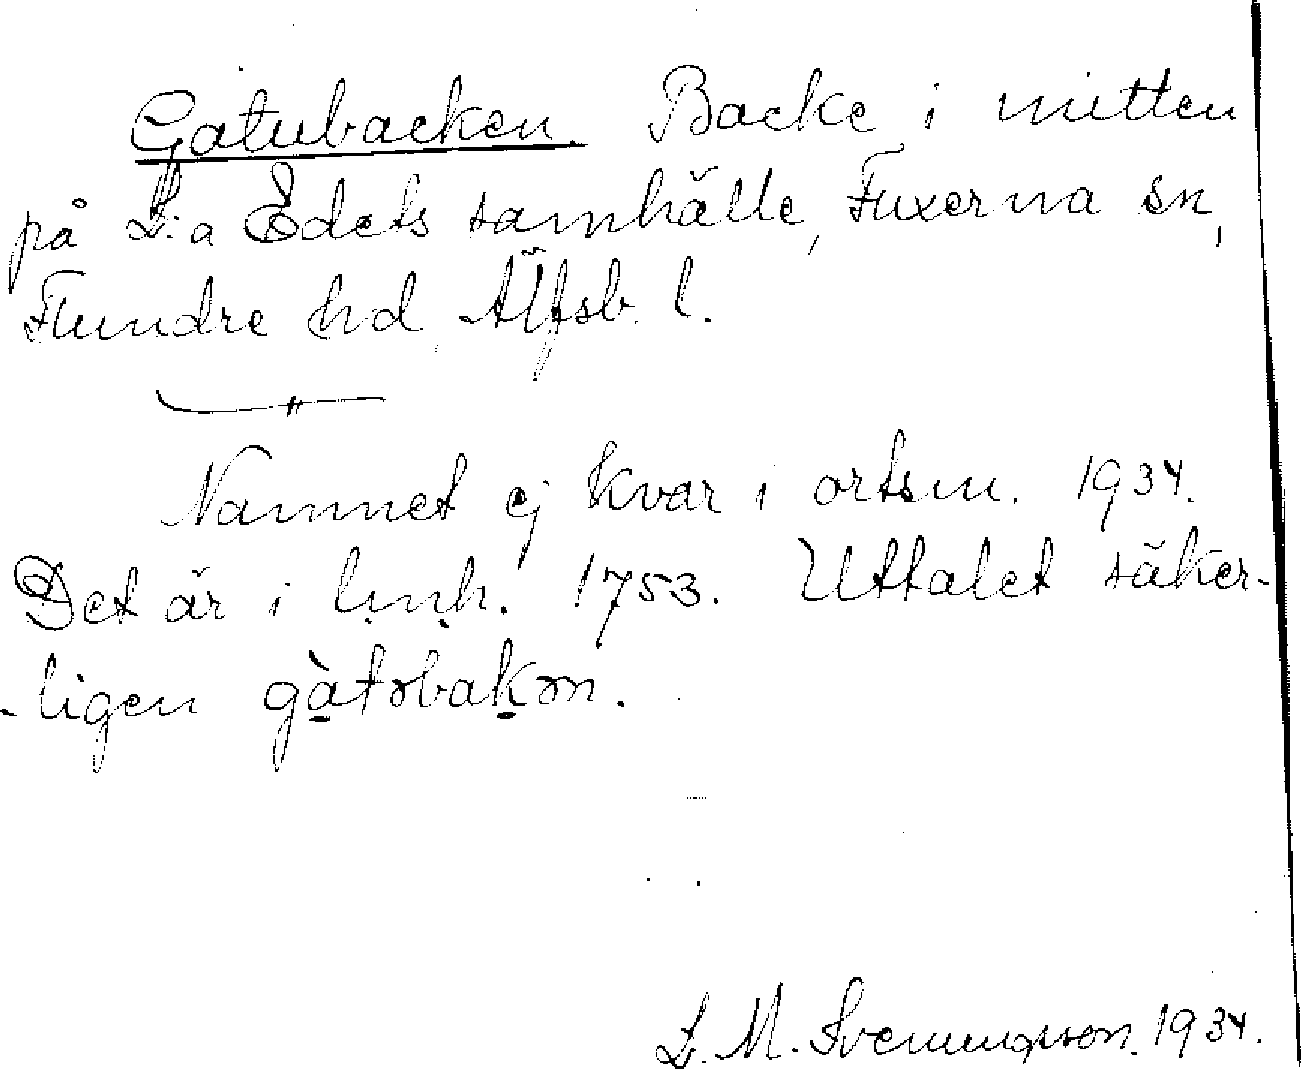 Gatubacken. Backe i mitten
på L:a Edets samhälle, Fuxerna sn,
Flundre hd, Älfsb. l.
Namnet ej kvar i ortsm. 1934.
Det är i lmh. 1753. Uttalet säker-
-ligen gàtəbakən.
L. M. Svenungsson. 1934.